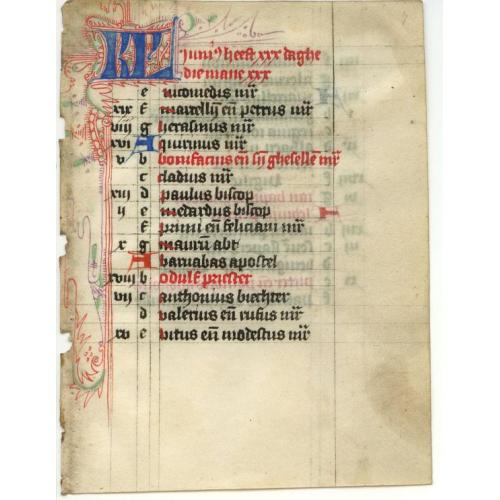 KL Juni⁹ heeft xxx daghe
die mane xxx
e nicomedis mr̄
xix f marcellij eñ petrus mr̄
viij g herasmus mr̄
xvi A quirinus mr̄
v b bonifacius eñ sij ghesellē mr̄
c cladius mr̄
xiij d paulus biscop
ij e medardus biscop
f primi eñ feliciani mr̄
x g maurū abt
A barnabas apostel
xviij b odulf priester
vij c anthonius biechter
d valerius eñ rufus mr̄
xv e vitus eñ modestus mr̄